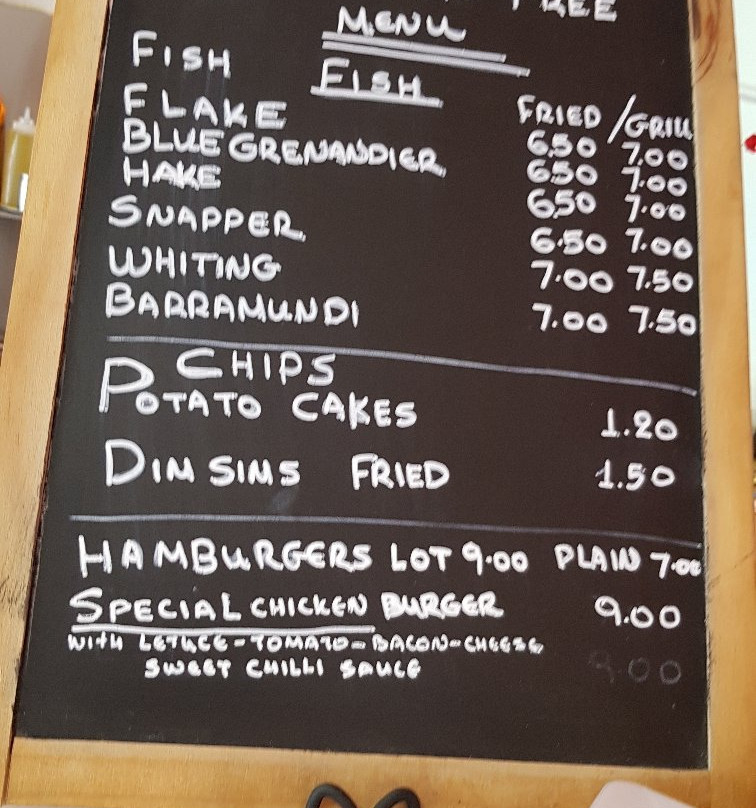 MENU
FISH
FISH
FRIED / GRILL
FLAKE 6.50 7.00
BLUE GRENANDIER 6.50 7.00
HAKE 6.50 7.00
SNAPPER 6.50 7.00
WHITING 7.00 7.50
BARRAMUNDI 7.00 7.50
CHIPS
POTATO CAKES 1.20
DIM SIMS FRIED 1.50
HAMBURGERS LOT 9.00 PLAIN 7.00
SPECIAL CHICKEN BURGER 9.00
WITH LETUCE-TOMATO-BACON-CHEESE
SWEET CHILLI SAUCE 9.00